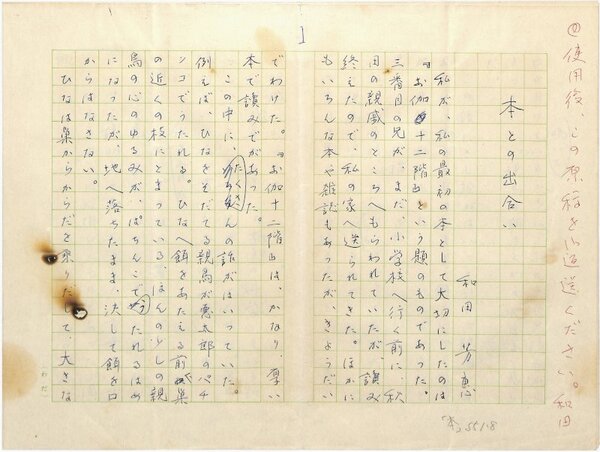 ④使用後、この原稿を御返送ください。和田
1
本との出合い
和田芳恵
私が、私の最初の本として大切にしたのは
『お伽十二階』という題のものであった。
三番目の兄が、まだ、小学校へ行く前に、秋
田の親戚のところへもらわれていたが、読み
終えたので、私の家へ送られてきた。ほかに
もいろんな本や雑誌もあったが、きょうだい
でわけた。『お伽十二階』は、かなり、厚い
本で読みでがあった。
この中に、たくさんの話がはいっていた。
例えば、ひなをそだてる親鳥が悪太郎のパチ
ンコでうたれる。ひなへ餌をあたえる前、巣
の近くの枝にとまっている、ほんの少しの親
鳥の心のゆるみが、ぱちんこでうたれるはめ
になったが、地へ落ちたまま、決して餌を口
からはなさない。
ひなは巣からからだを乗りだして、大きな
わだ